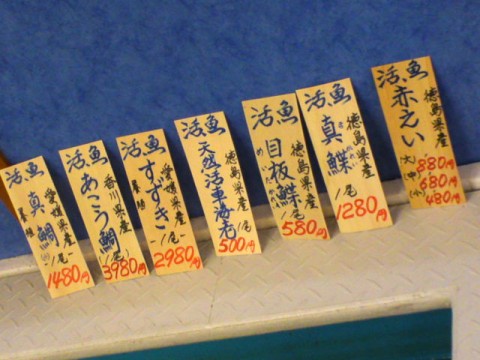 活魚
愛媛県産
養殖
真鯛
1尾
1480円
活魚
香川県産
あこう鯛
1尾
3980円
活魚
愛媛県産
養殖
すずき
1尾
2980円
活魚
徳島県産
天然活車海老
1尾
500円
活魚
徳島県産
目板鰈
めいたがれい
1尾
580円
活魚
徳島県産
真鰈
1尾
1280円
活魚
徳島県産
赤えい
(大) 880円
(中) 680円
(小) 480円